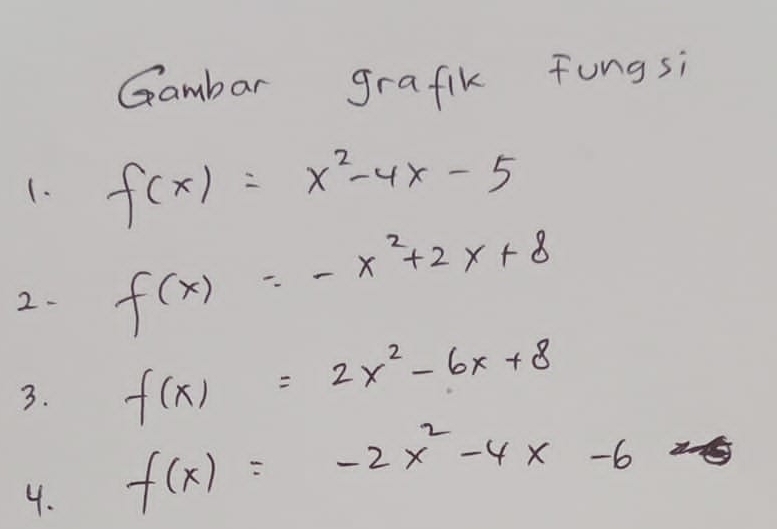 Gambar grafik Fungsi
1. f(x) = x²-4x - 5
2- f(x) = - x²+2x+8
3. f(x) = 2x² - 6x +8
4. f(x) = -2x² -4x -6